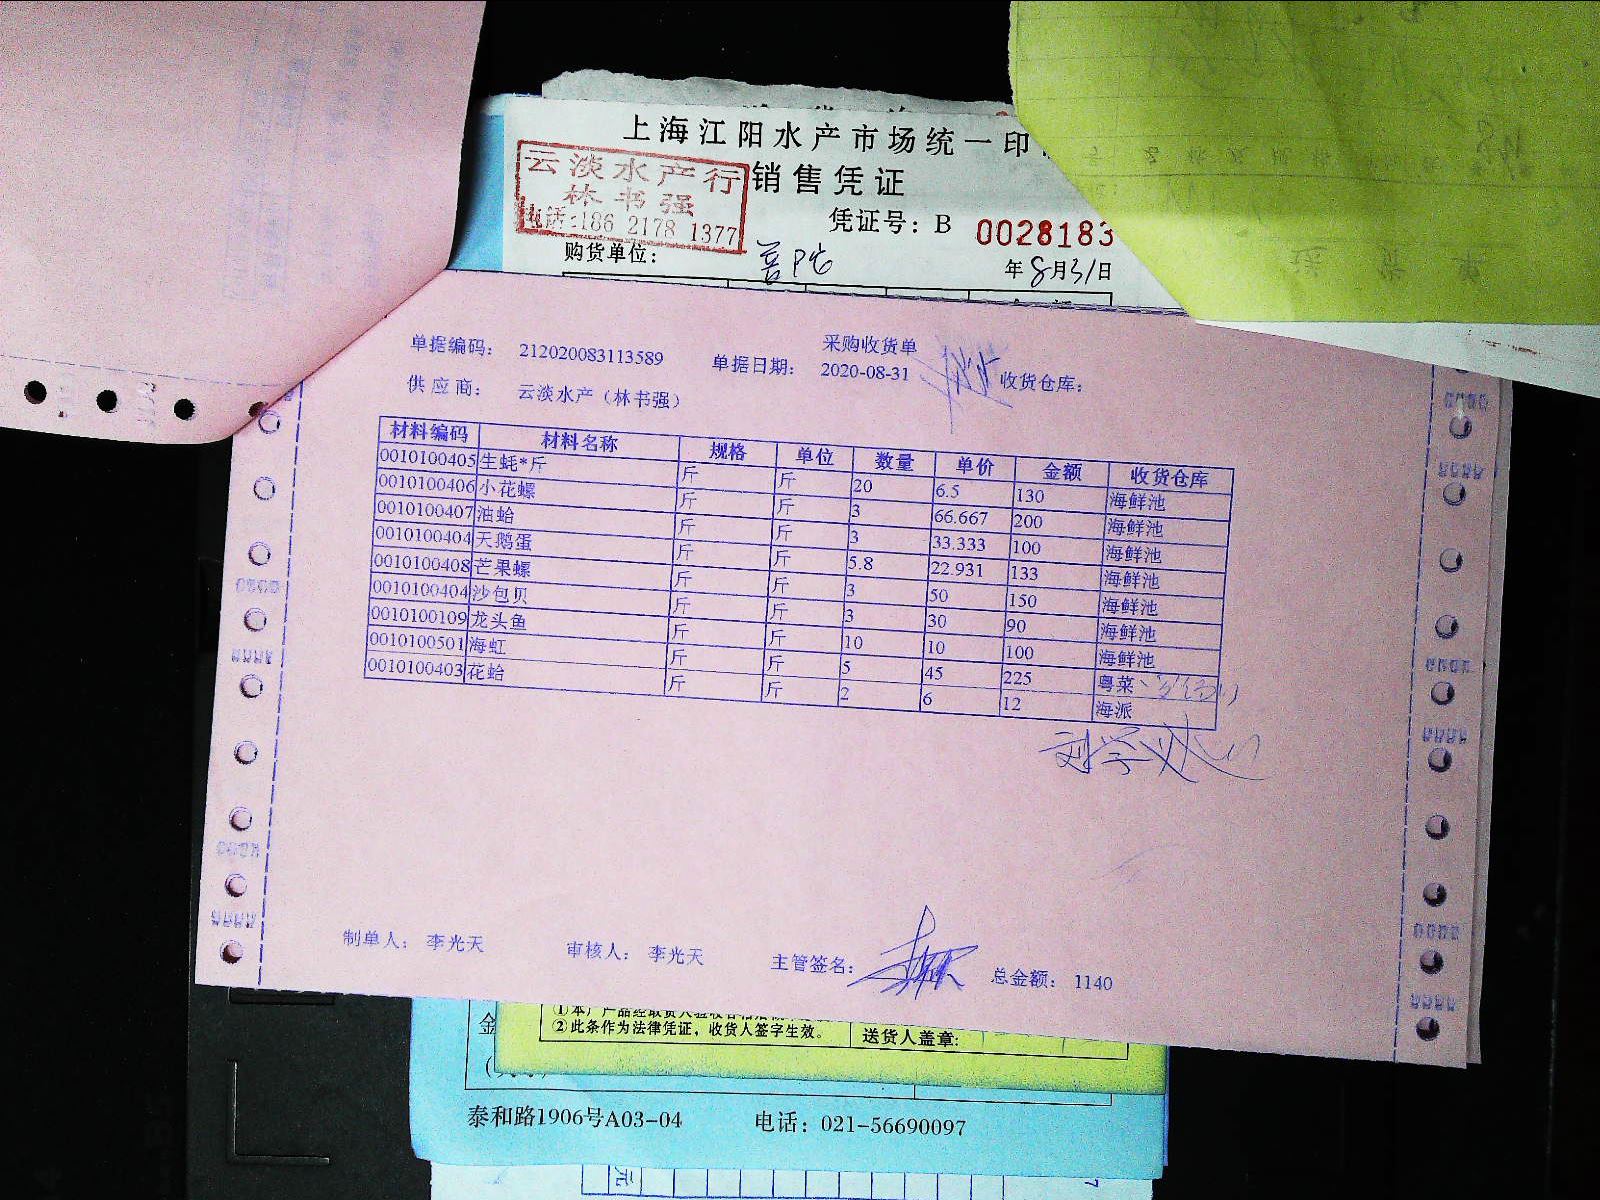 上海江阳水产市场统一印
云淡水产行
林书强
电话:186 2178 1377
销售凭证
凭证号: B 0028183
购货单位: 普陀
年8月31日
采购收货单
单据编码: 212020083113589 单据日期: 2020-08-31 收货仓库:
供应商: 云淡水产（林书强）
材料编码 材料名称 规格 单位 数量 单价 金额 收货仓库
0010100405 生蚝*斤 斤 斤 20 6.5 130 海鲜池
0010100406 小花螺 斤 斤 3 66.667 200 海鲜池
0010100407 油蛤 斤 斤 3 33.333 100 海鲜池
0010100404 天鹅蛋 斤 斤 5.8 22.931 133 海鲜池
0010100408 芒果螺 斤 斤 3 50 150 海鲜池
0010100404 沙包贝 斤 斤 3 30 90 海鲜池
0010100109 龙头鱼 斤 斤 10 10 100 海鲜池
0010100501 海虹 斤 斤 5 45 225 粤菜
0010100403 花蛤 斤 斤 2 6 12 海派
制单人: 李光天 审核人: 李光天 主管签名: 总金额: 1140
②此条作为法律凭证，收货人签字生效。 送货人盖章:
金
泰和路1906号A03-04 电话: 021-56690097
元